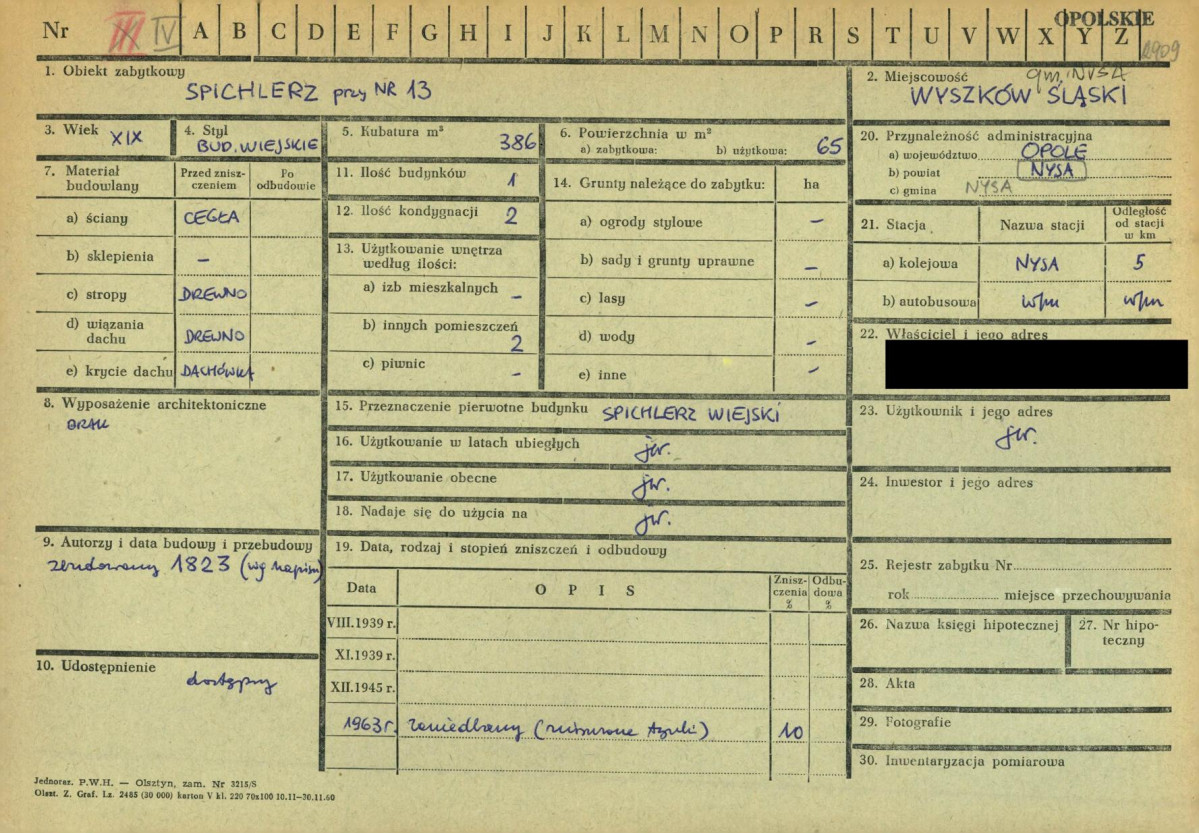 Nr III IV A B C D E F G H I J K L M N O P R S T U V W X Y Z OPOLSKIE 2909
1. Obiekt zabytkowy
SPICHLERZ przy NR 13
2. Miejscowość gm. NYSA
WYSZKÓW ŚLĄSKI
3. Wiek XIX
4. Styl
BUD. WIEJSKIE
5. Kubatura m³
386
6. Powierzchnia w m²
a) zabytkowa: b) użytkowa: 65
7. Materiał budowlany
Przed zniszczeniem
Po odbudowie
a) ściany CEGŁA
b) sklepienia –
c) stropy DREWNO
d) wiązania dachu DREWNO
e) krycie dachu DACHÓWKA
8. Wyposażenie architektoniczne
BRAK
9. Autorzy i data budowy i przebudowy
zbudowany 1823 (wg napisu)
10. Udostępnienie
dostępny
11. Ilość budynków 1
12. Ilość kondygnacji 2
13. Użytkowanie wnętrza według ilości:
a) izb mieszkalnych –
b) innych pomieszczeń 2
c) piwnic –
14. Grunty należące do zabytku: ha
a) ogrody stylowe –
b) sady i grunty uprawne –
c) lasy –
d) wody –
e) inne –
15. Przeznaczenie pierwotne budynku SPICHLERZ WIEJSKI
16. Użytkowanie w latach ubiegłych jw.
17. Użytkowanie obecne jw.
18. Nadaje się do użycia na jw.
19. Data, rodzaj i stopień zniszczeń i odbudowy
Data OPIS Zniszczenia % Odbudowa %
VIII.1939 r.
XI.1939 r.
XII.1945 r.
1963 r. zaniedbany ( tynki) 10
20. Przynależność administracyjna
a) województwo OPOLE
b) powiat NYSA
c) gmina NYSA
21. Stacja Nazwa stacji Odległość od stacji w km
a) kolejowa NYSA 5
b) autobusowa w/m w/m
22. Właściciel i jego adres
23. Użytkownik i jego adres
jw.
24. Inwestor i jego adres
25. Rejestr zabytku Nr
rok miejsce przechowywania
26. Nazwa księgi hipotecznej
27. Nr hipoteczny
28. Akta
29. Fotografie
30. Inwentaryzacja pomiarowa
Jednoraz. P.W.H. — Olsztyn, zam. Nr 3215/S
Olszt. Z. Graf. Lz. 2485 (30 000) karton V kl. 220 70x100 10.11–30.11.60